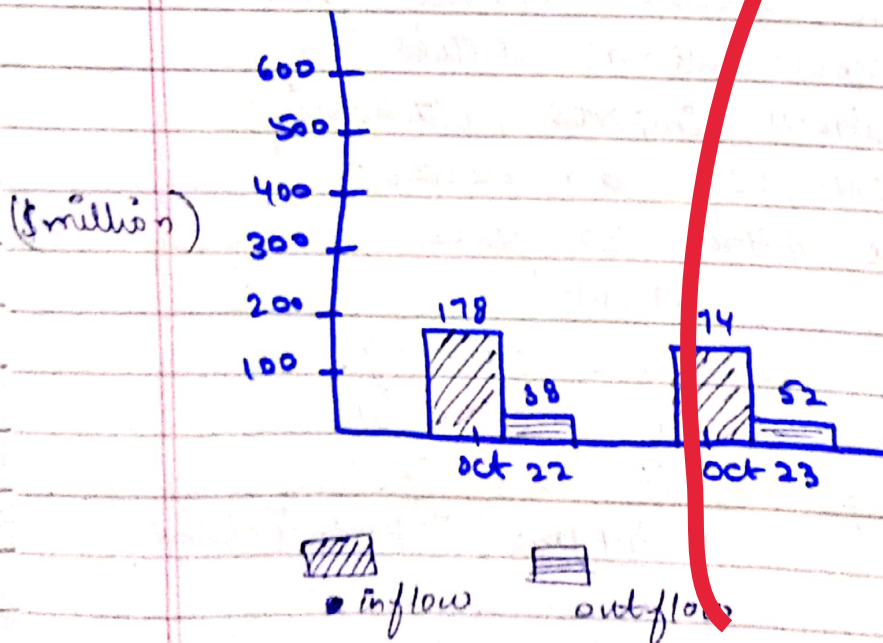 600
500
400
($million)
300
200
178
100
38
52
Oct 22
Oct 23
inflow
outflow